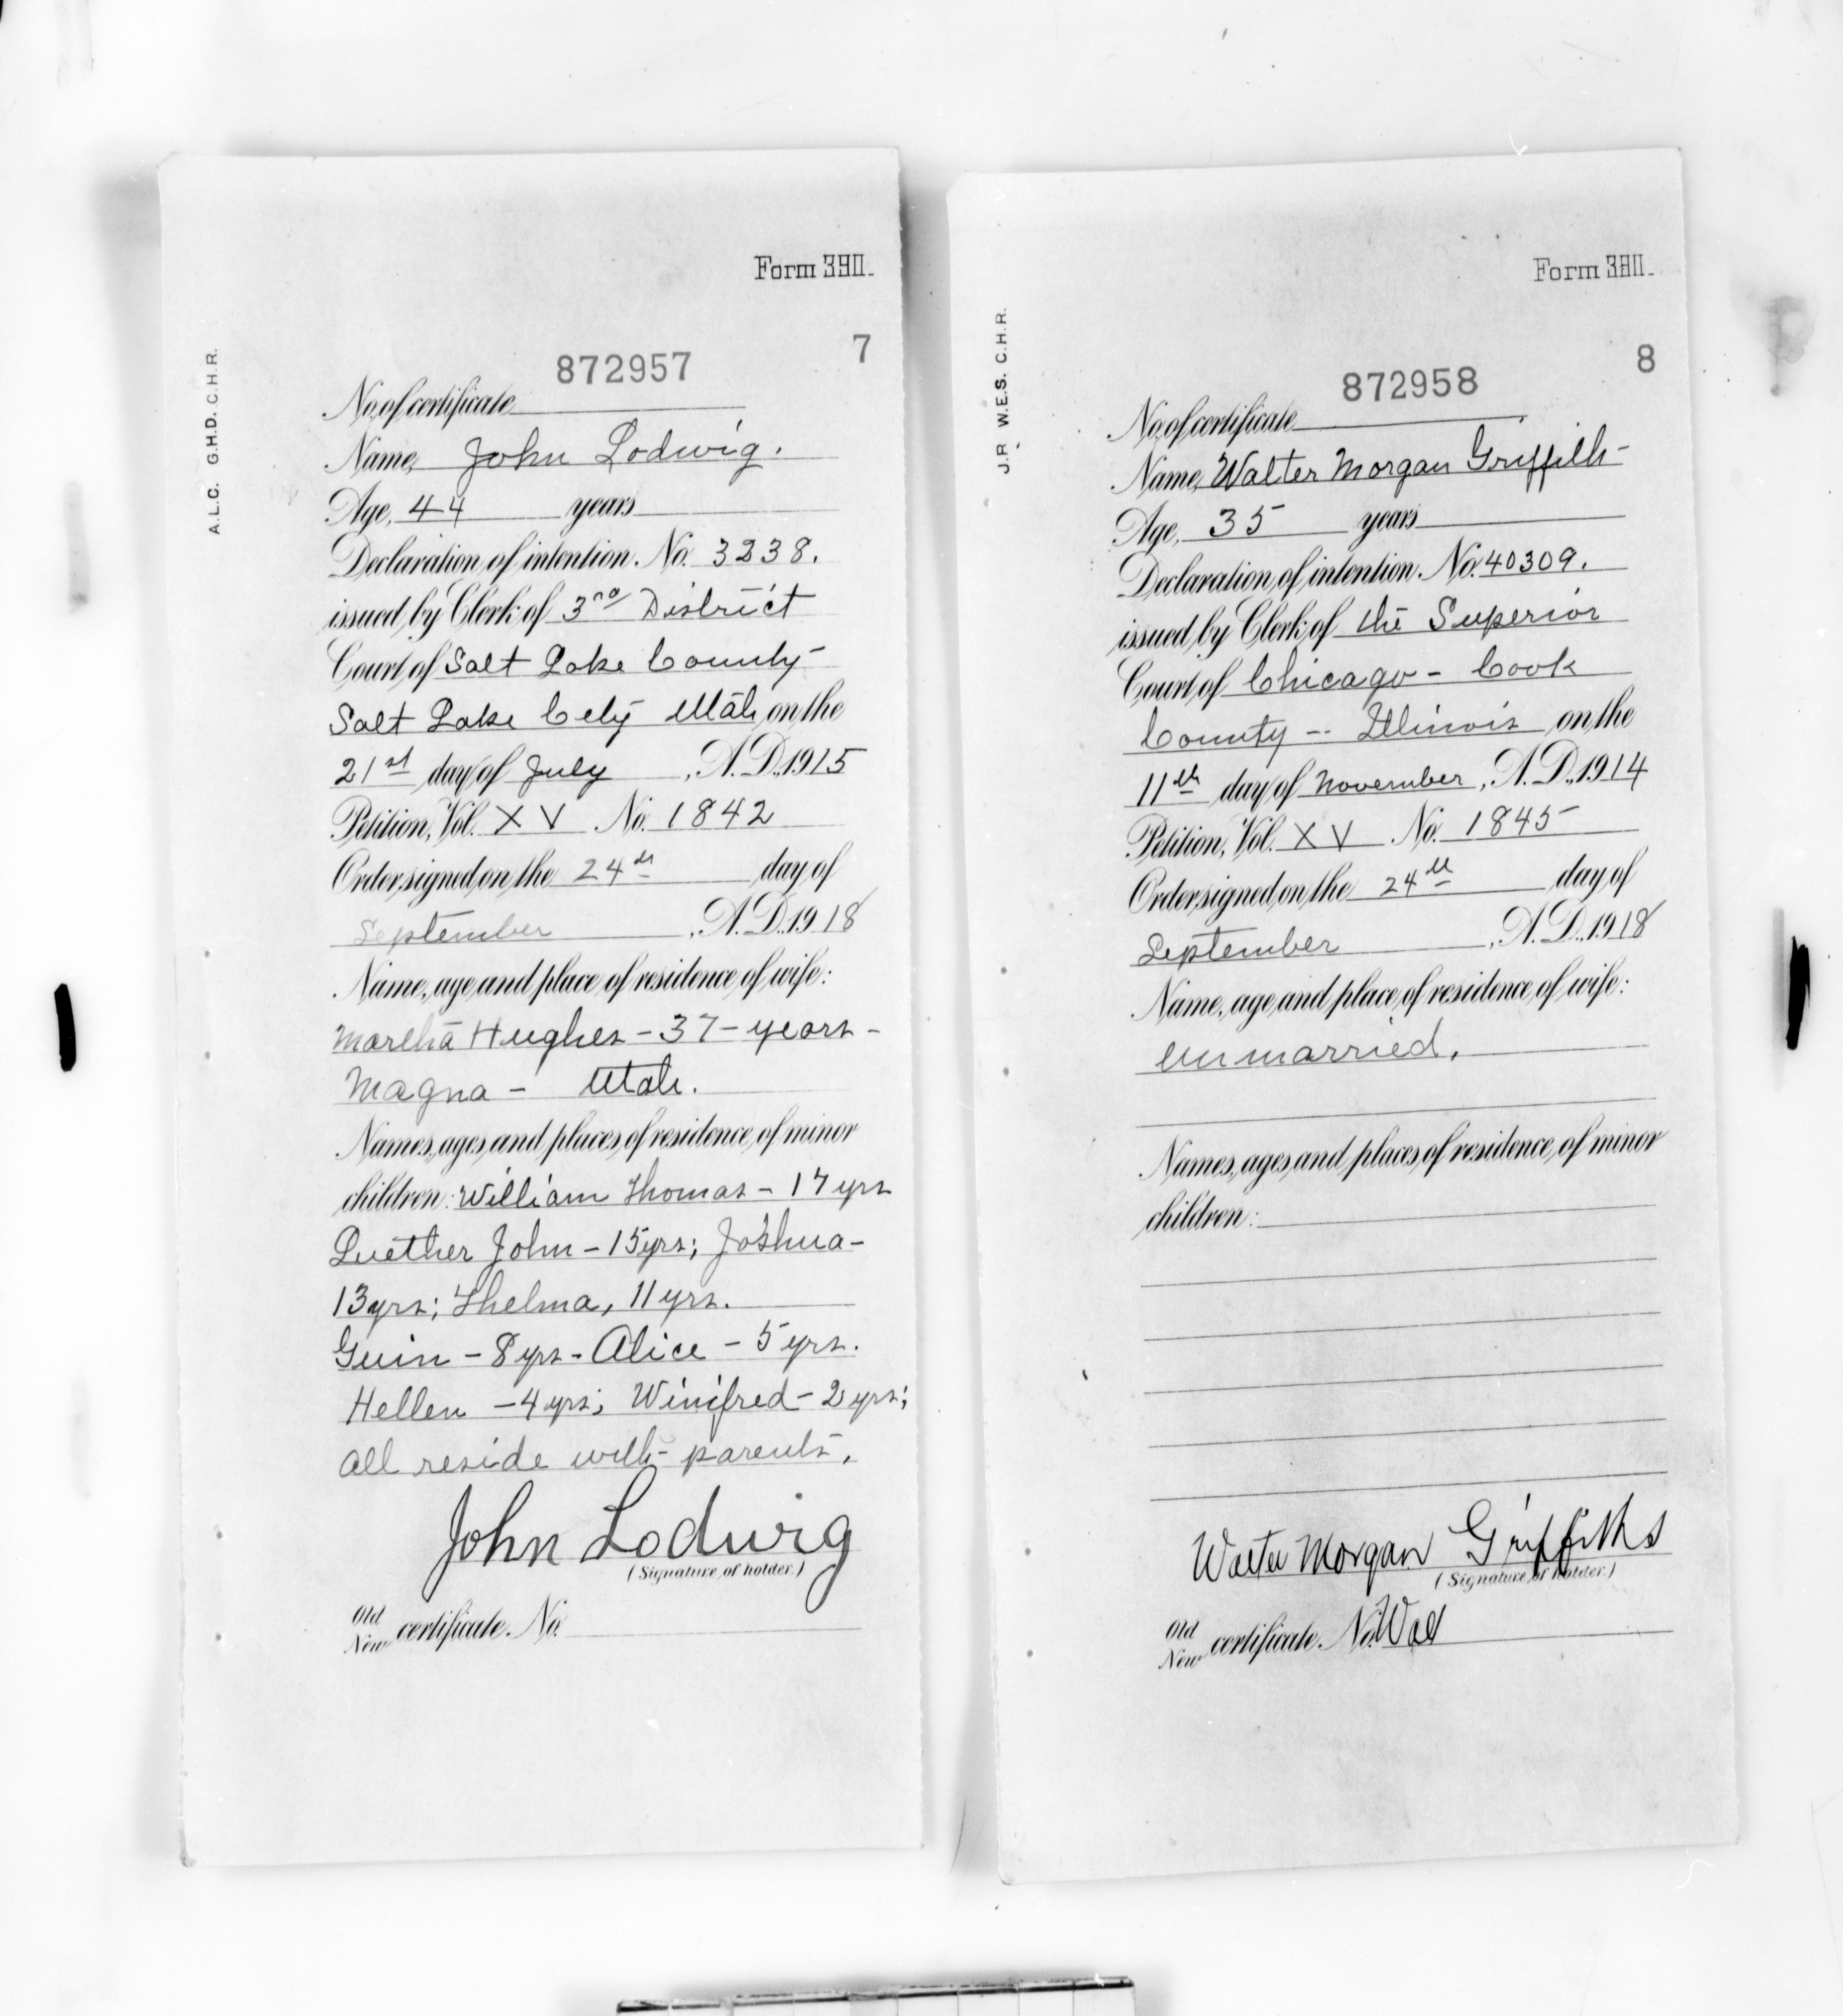 A.L.C. G.H.D. C.H.R.
Form 390.
7
872957
No. of certificate
Name, John Lodwig.
Age, 44 years
Declaration of intention. No. 3238.
issued by Clerk of 3rd District
Court of Salt Lake County-
Salt Lake City Utah on the
21st day of July, A.D. 1915
Petition, Vol. XV No. 1842
Order signed on the 24th day of
September, A.D. 1918
Name, age and place of residence of wife:
Martha Hughes - 37 - years -
Magna - Utah.
Names, ages and places of residence of minor
children: William Thomas - 17 yrs
Luether John - 15 yrs; Joshua -
13 yrs; Thelma, 11 yrs.
Guin - 8 yrs - Alice - 5 yrs.
Hellen - 4 yrs; Winifred - 2 yrs;
all reside with parents.
John Lodwig
(Signature of holder.)
Old
New certificate. No.
J.R W.E.S. C.H.R.
Form 390.
8
872958
No. of certificate
Name, Walter Morgan Griffith-
Age, 35 years
Declaration of intention. No. 40309.
issued by Clerk of the Superior
Court of Chicago - Cook
County -- Illinois on the
11th day of November, A.D. 1914
Petition, Vol. XV No. 1845
Order signed on the 24th day of
September, A.D. 1918
Name, age and place of residence of wife:
Unmarried.
Names, ages and places of residence of minor
children:
Walter Morgan Griffiths
(Signature of holder.)
Old
New certificate. No. Wal